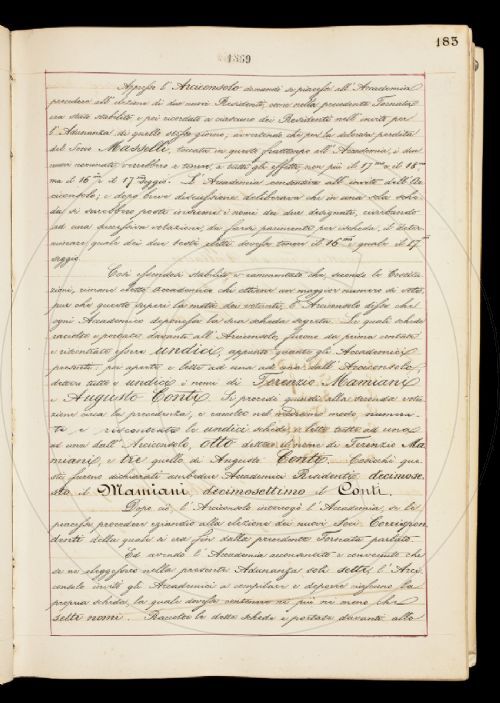 183
1869
Appresso l'Arciconsolo domandò se piacesse all'Accademia
procedere all'elezione di due nuovi Residenti, come nella precedente Tornata
era stato stabilito e poi ricordato a ciascuno dei Residenti nell'invito per
l'Adunanza di quello stesso giorno, avvertendo che per la dolorosa perdita
del Socio Masselli, toccata in questo frattempo all'Accademia, i due
nuovi nominati verrebbero a tenere, a tutti gli effetti, non più il 17mo e il 18mo
ma il 16mo e il 17mo seggio. L'Accademia consentiva all'invito dell'Ar
ciconsolo, e dopo breve discussione deliberava che in una sola sche
da si sarebbero poste insieme i nomi dei due designati, riserbando
ad una successiva votazione, da farsi parimente per scheda, il deter
minare quale dei due Soci eletti dovesse tenere il 16mo e quale il 17mo
seggio.
Così essendosi stabilito, e rammentato che, secondo le Costitu
zioni, rimane eletto Accademico chi ottiene un maggior numero di voti,
pur che questo superi la metà dei votanti, l'Arciconsolo disse che
ogni Accademico deponesse la sua scheda segreta. Le quali schede
raccolte e portate davanti all'Arciconsolo, furono da prima contate
e riscontrate essere undici, appunto quanti gli Accademici
presenti; poi aperte e lette ad una ad una dall'Arciconsolo,
dettero tutte e undici i nomi di Terenzio Mamiani
e Augusto Conti. Si procedè quindi alla seconda vota
zione circa la precedenza, e raccolte nel medesimo modo, numera
te e riscontrate le undici schede, e lette tutte ad una
ad una dall'Arciconsolo, otto dettero il nome di Terenzio Ma
miani, e tre quello di Augusto Conti. Cosicchè que
sti furono dichiarati ambedue Accademici Residenti: decimose
sto il Mamiani, decimosettimo il Conti.
Dopo ciò, l'Arciconsolo interrogò l'Accademia, se le
piacesse procedere eziandio alla elezione dei nuovi Soci Corrispon
denti della quale si era fin dalla precedente Tornata parlato.
Ed avendo l'Accademia acconsentito e convenuto che
se ne eleggessero nella presente Adunanza soli sette, l'Arci
consolo invitò gli Accademici a compilare e deporre ciascuno la
propria scheda, la quale dovesse contenere nè più nè meno che
sette nomi. Raccolte le dette schede e portate davanti allo